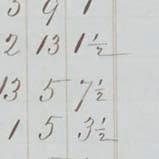 2 13 1½
13 5 7½
1 5 3½